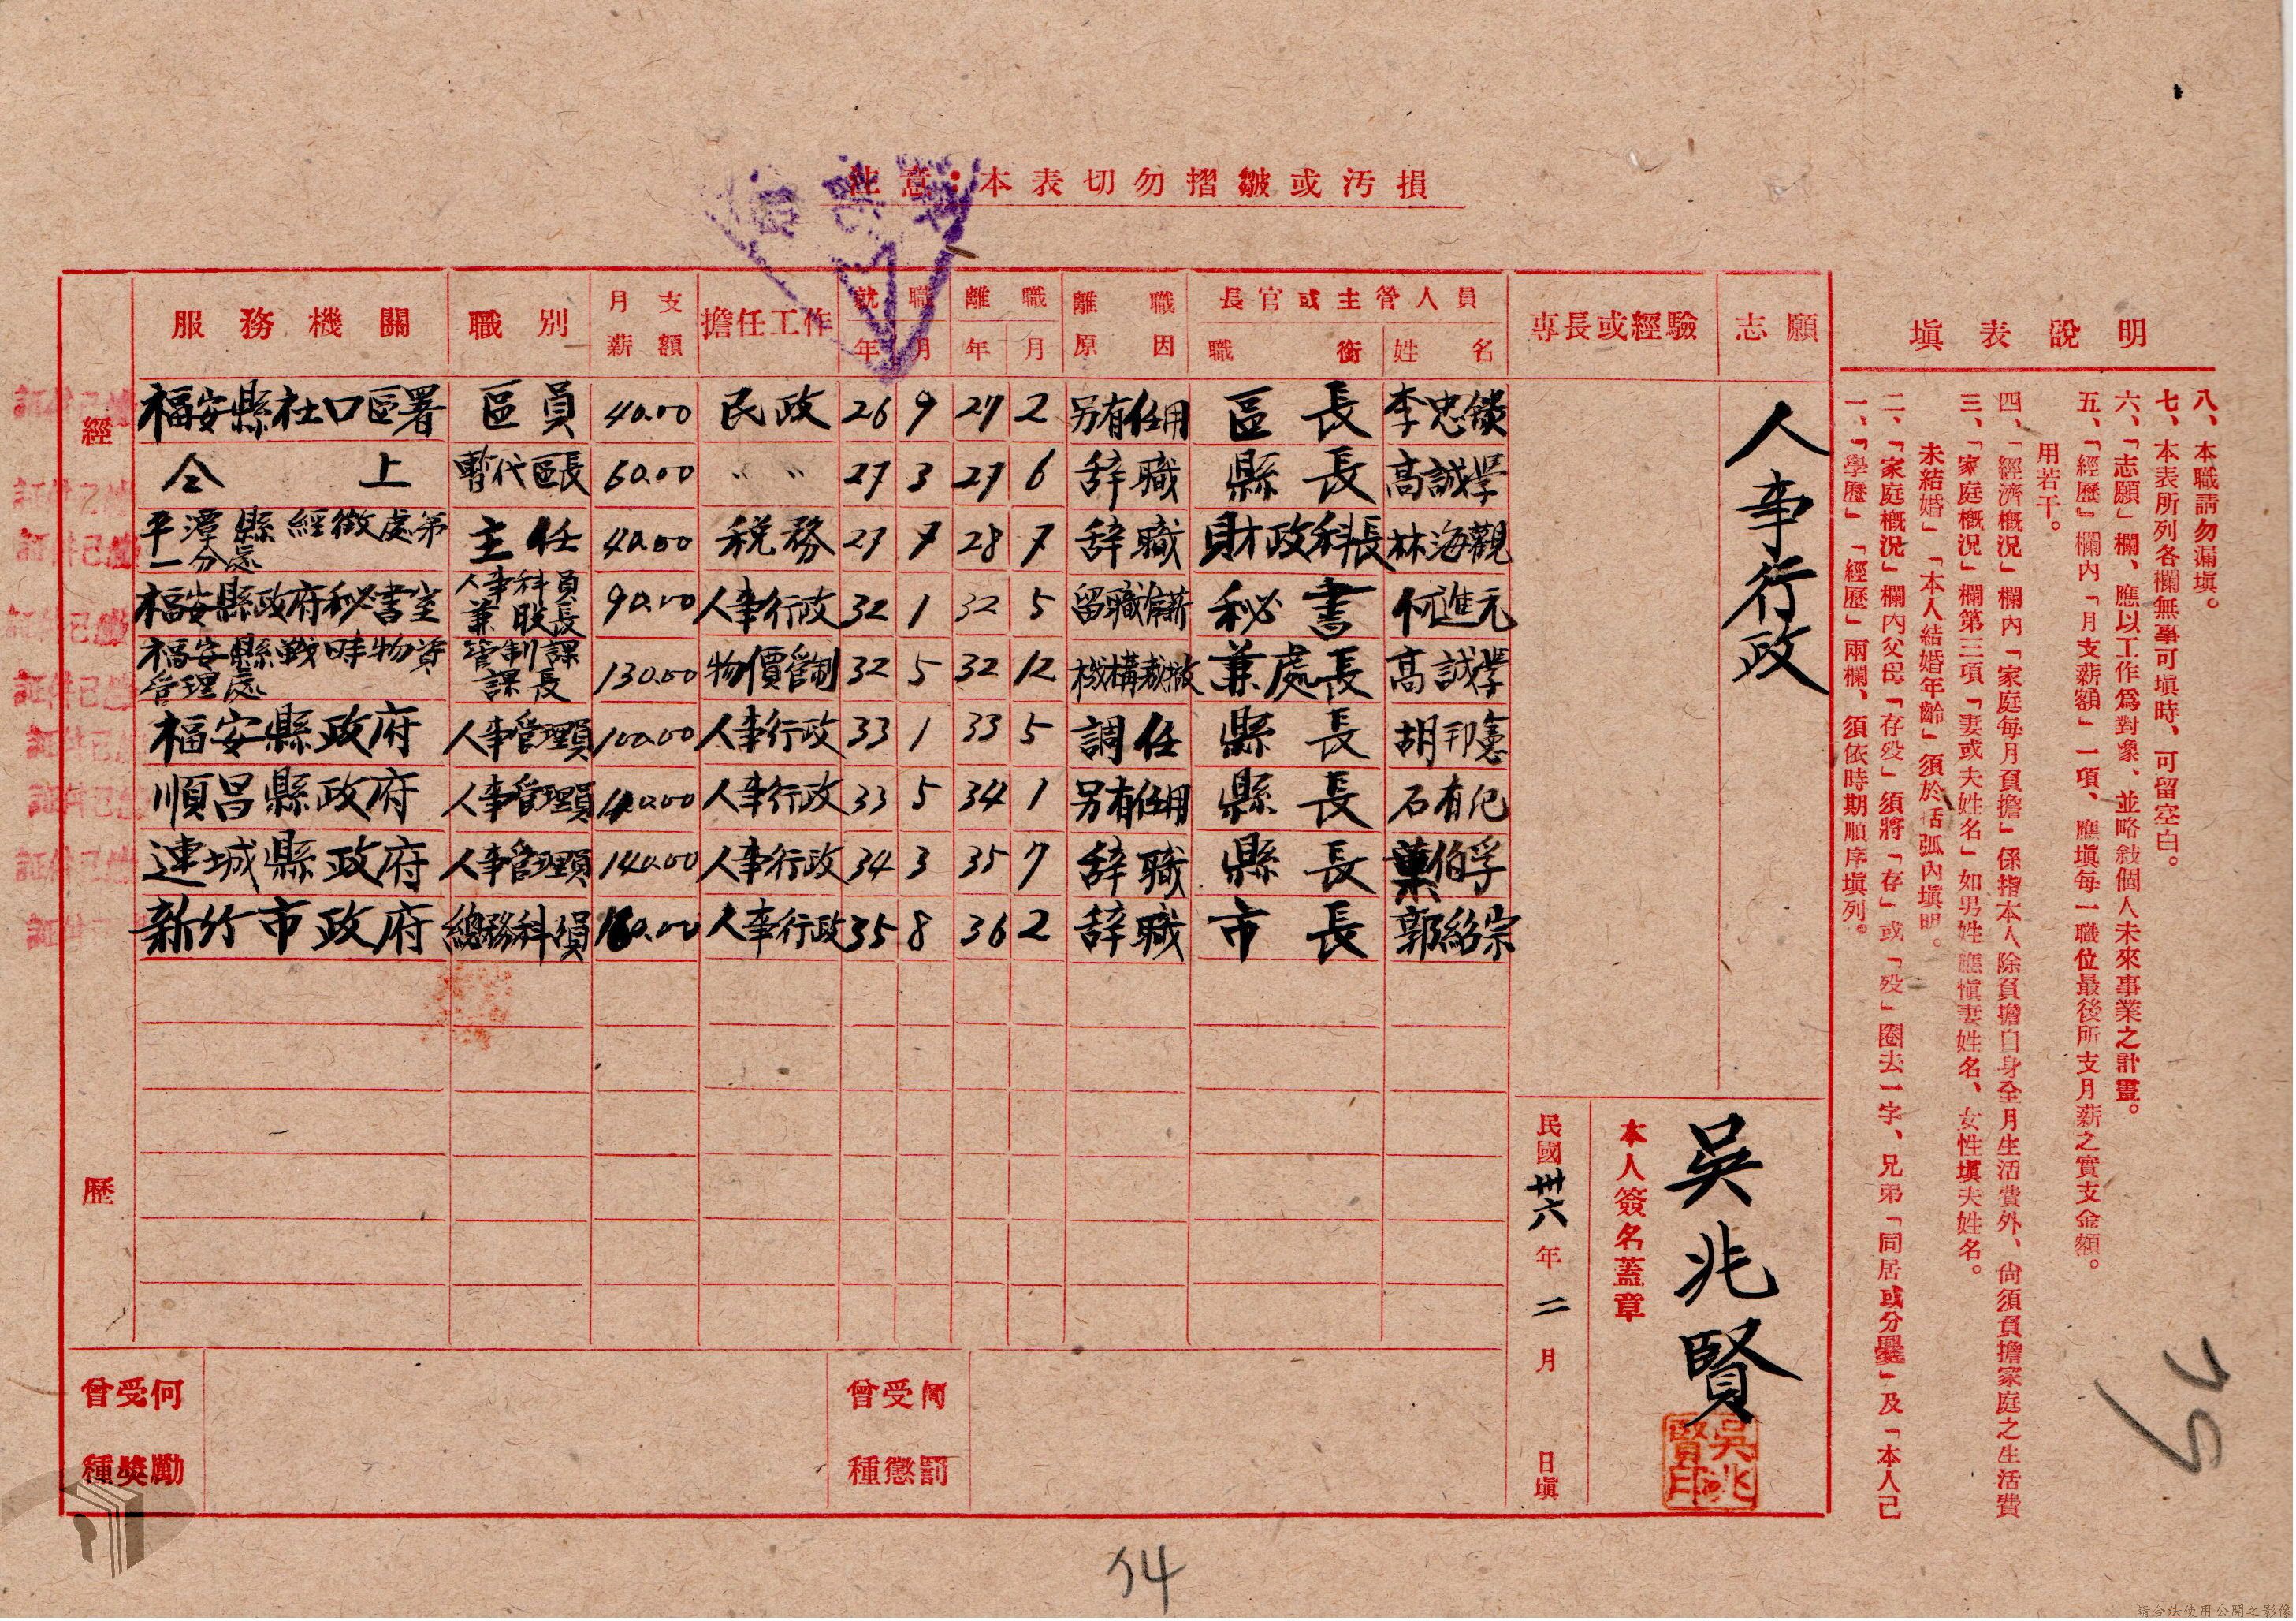 注意：本表切勿摺皺或汚損
經歷
服務機關 職別 月支薪額 擔任工作 就職年月 離職年月 離職原因 長官或主管人員職銜 姓名
福安縣社口區署 區員 40.00 民政 26 9 27 2 另有任用 區長 李忠
仝上 暫代區長 60.00 〃〃 27 3 27 6 辞職 縣長 高誠學
平潭縣經徵處第一分處 主任 40.00 稅務 27 7 28 7 辞職 財政科長 林海觀
福安縣政府秘書室 人事科員兼股長 90.00 人事行政 32 1 32 5 留職停薪 秘書 何進元
福安縣戰時物資管理處 管制課課長 130.00 物價管制 32 5 32 12 機構裁撤 兼處長 高誠學
福安縣政府 人事管理員 100.00 人事行政 33 1 33 5 調任 縣長 胡邦憲
順昌縣政府 人事管理員 140.00 人事行政 33 5 34 1 另有任用 縣長 石有
連城縣政府 人事管理員 140.00 人事行政 34 3 35 7 辞職 縣長 伯孚
新竹市政府 總務科員 160.00 人事行政 35 8 36 2 辞職 市長 郭紹宗
專長或經驗
志願
人事行政
本人簽名蓋章
吳兆賢
吳兆賢印
民國卅六年二月 日塡
曾受何種獎勵
曾受何種懲罰
塡表說明
一、「學歷」「經歷」兩欄、須依時期順序塡列。
二、「家庭槪況」欄內父母「存歿」須將「存」或「歿」圈去一字、兄弟「同居或分爨」及「本人已
未結婚」「本人結婚年齡」須於括弧內塡明。
三、「家庭槪況」欄第三項「妻或夫姓名」如男姓應愼妻姓名、女性塡夫姓名。
四、「經濟槪況」欄內「家庭每月負擔」係指本人除負擔自身全月生活費外、尙須負擔家庭之生活費
用若干。
五、「經歷」欄內「月支薪額」一項、應塡每一職位最後所支月薪之實支金額。
六、「志願」欄、應以工作爲對象、並略敍個人未來事業之計畫。
七、本表所列各欄無事可塡時、可留空白。
八、本職請勿漏塡。
54
請合法使用公開之影像